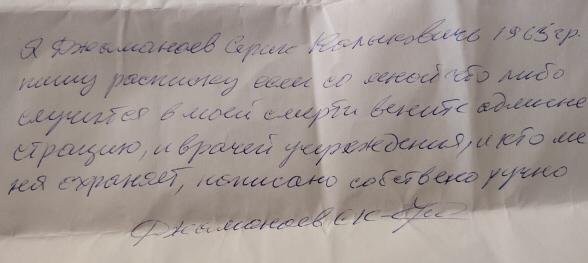 Я Джаманаев Серик Калыкович 1965 гр.
пишу расписку если со мной что либо
случится в моей смерти вените админе
страцию, и врачей учреждения, и кто ме
ня охраняет, написано собствено ручно
Джаманаев С К